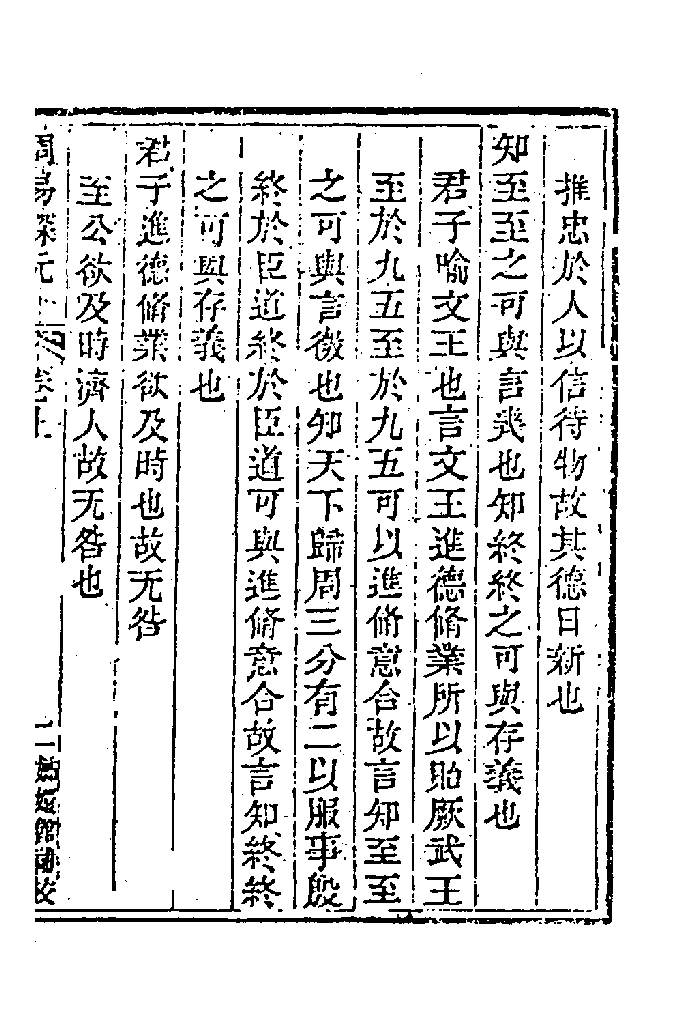 推忠於人以信待物故其德日新也
知至至之可與言㡬也知終終之可與存義也
君子喻文王也言文王進德脩業所以貽厥武王
至於九五至於九五可以進脩意合故言知至至
之可與言微也知天下歸周三分有二以服事殷
終於臣道終於臣道可與進脩意合故言知終終
之可與存義也
君子進德脩業欲及時也故无咎
至公欲及時濟人故无咎也
周易探元 卷上
二